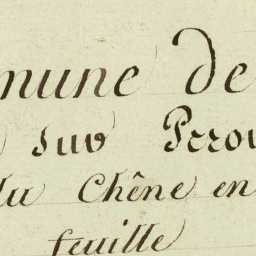 mune de
sur Perou
du Chêne en
feuille